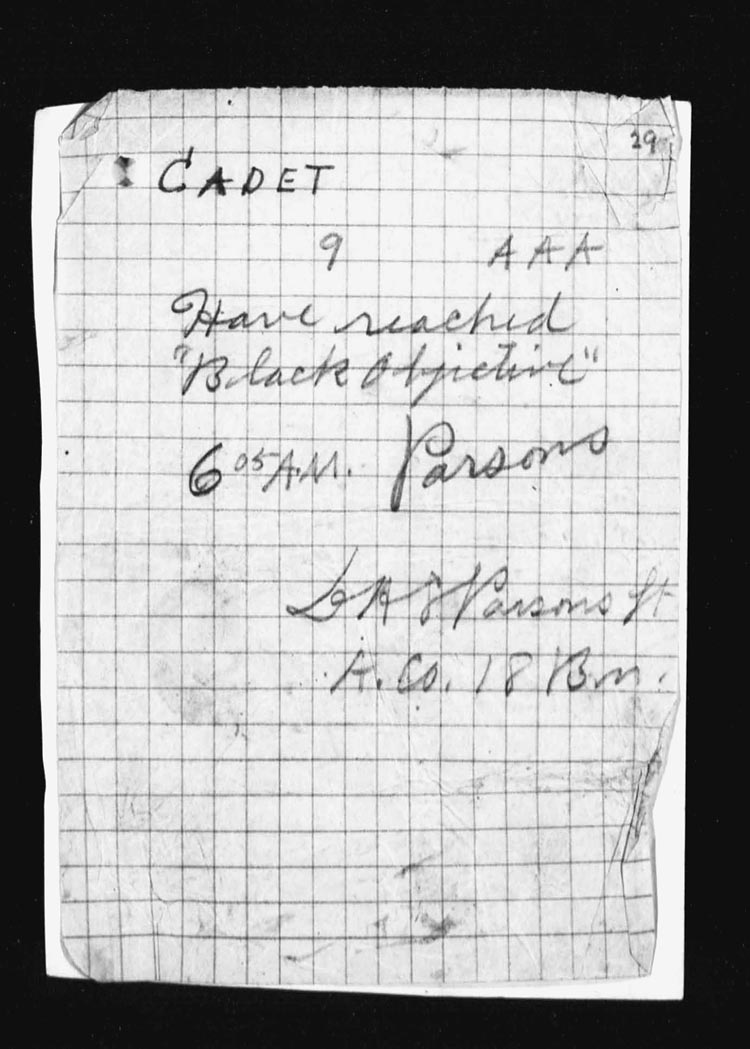 29
CADET
9 AAA
Have reached
"Black Objective"
6 05 A.M. Parsons
Parsons Lt
A. Co. 18 Bn.